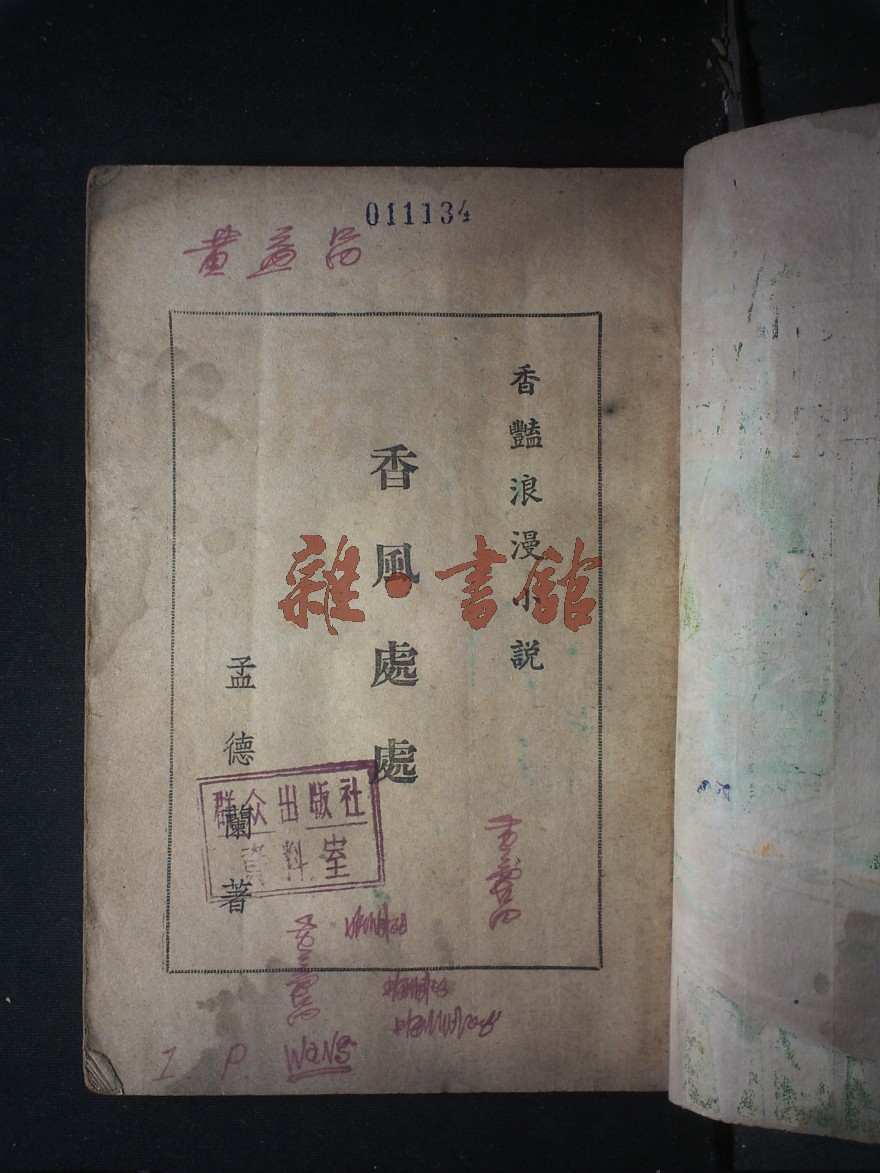 011134
黄益昌
香豔浪漫小説
香風處處
孟德蘭著
雜·書館
群众出版社
資料室
I. P. WANG